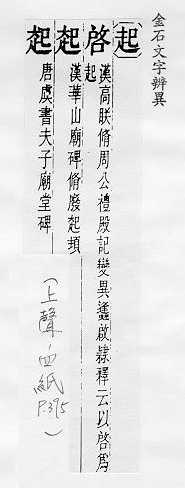 金石文字辨異
〔起〕
啓 漢高眹脩周公禮殿記變異蠭啟隸釋云以啓為
起
起 漢華山廟碑脩廢起頓
起 唐虞書夫子廟堂碑
(上聲.四紙
P.395)